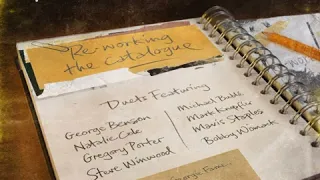 Re-working
the Catalogue
Duets Featuring
George Benson
Natalie Cole
Gregory Porter
Steve Winwood
Michael Bublé
Mark Knopfler
Mavis Staples
Bobby Womack
George Fame...